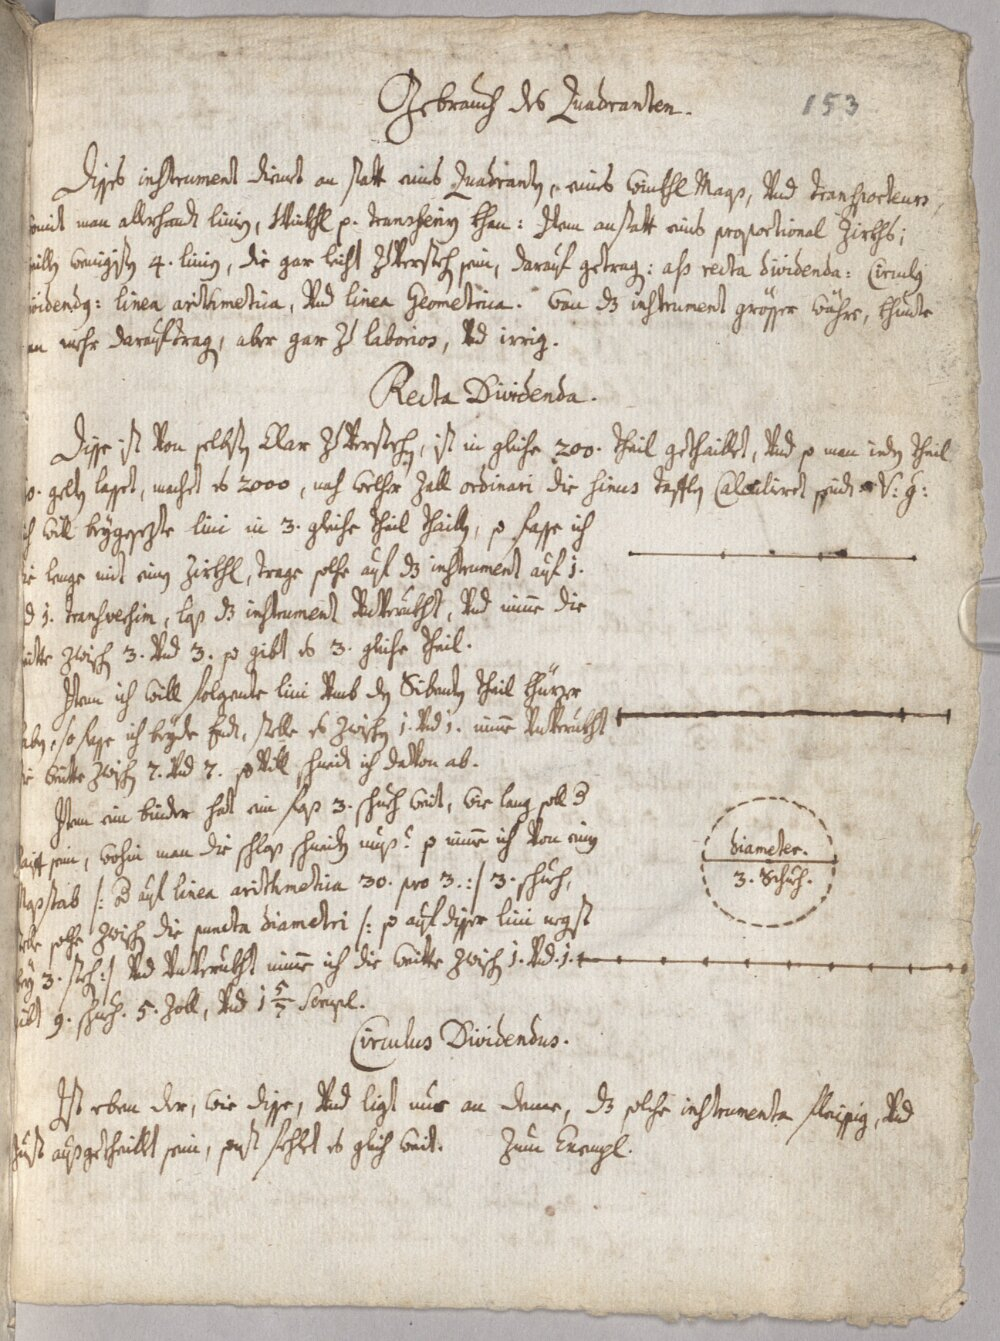 Gebrauch des Quadranten.
153
Dises instrument dienet an statt eines Quadranten, eines Winkhl Mass, Vnd transporteurs,
man allerhandt linien, Winkhl p. transferirn khan: Item anstatt eines proportional Zirkhls;
4. linien, die gar leicht zu Verstehen sein, darauf getragen: als recta dividenda: Circulus
dividendus: linea arithmetica, Vnd linea Geometrica. Wan dz instrument grösser währe, khundte
man mehr darauf tragen, aber gar zu laborios, Vnd irrig.
Recta Dividenda.
Dise ist Von selbsten klar zu Verstehen, ist in gleiche 200. theil getheillet, Vnd so man ieden theil
10. gelten lasset, machet es 2000, nach welcher Zall ordinari die sinus taffeln Calculiret seind. V: g:
ich will beygesezte lini in 3. gleiche theil theillen, so fasse ich
die lenge mit einem Zirkhl, trage solche auf dz instrument auf 1.
Vnd 1. transversim, lass dz instrument VnVerrukht, Vnd nimme die
weitte zwischen 3. Vnd 3. so gibt es 3. gleiche theil.
Item ich will folgente lini Vmb den Sibenten theil khürzer
haben, so fasse ich beyde Endt, stelle es zwischen 1. Vnd 1. nimme VnVerrukht
die weitte zwischen 7. Vnd 7. so Vill schneide ich daVon ab.
Item ein binder hat ein fass 3. schuch weit, wie lang soll d
Raiff sein, wohin man die schloss schneiden muss? so nimme ich Von einem
Masstab /: od auf linea arithmetica 30. pro 3. :/ 3. schuch,
stelle solche zwischen die puncta diametri /: so auf diser lini negst
bey 3. steh :/ Vnd VnVerrukht nimme ich die weitte zwischen 1. Vnd 1.
gibt 9. schuch. 5. Zoll, Vnd 1 5/7 Scrupl.
diameter.
3. Schuch.
Circulus Dividendus.
Ist eben der, wie dise, Vnd ligt nur an deme, dz solche instrumenta fleissig, Vnd
just aussgetheillet sein, sonst fehlet es gleich weit. Zum Exempl.